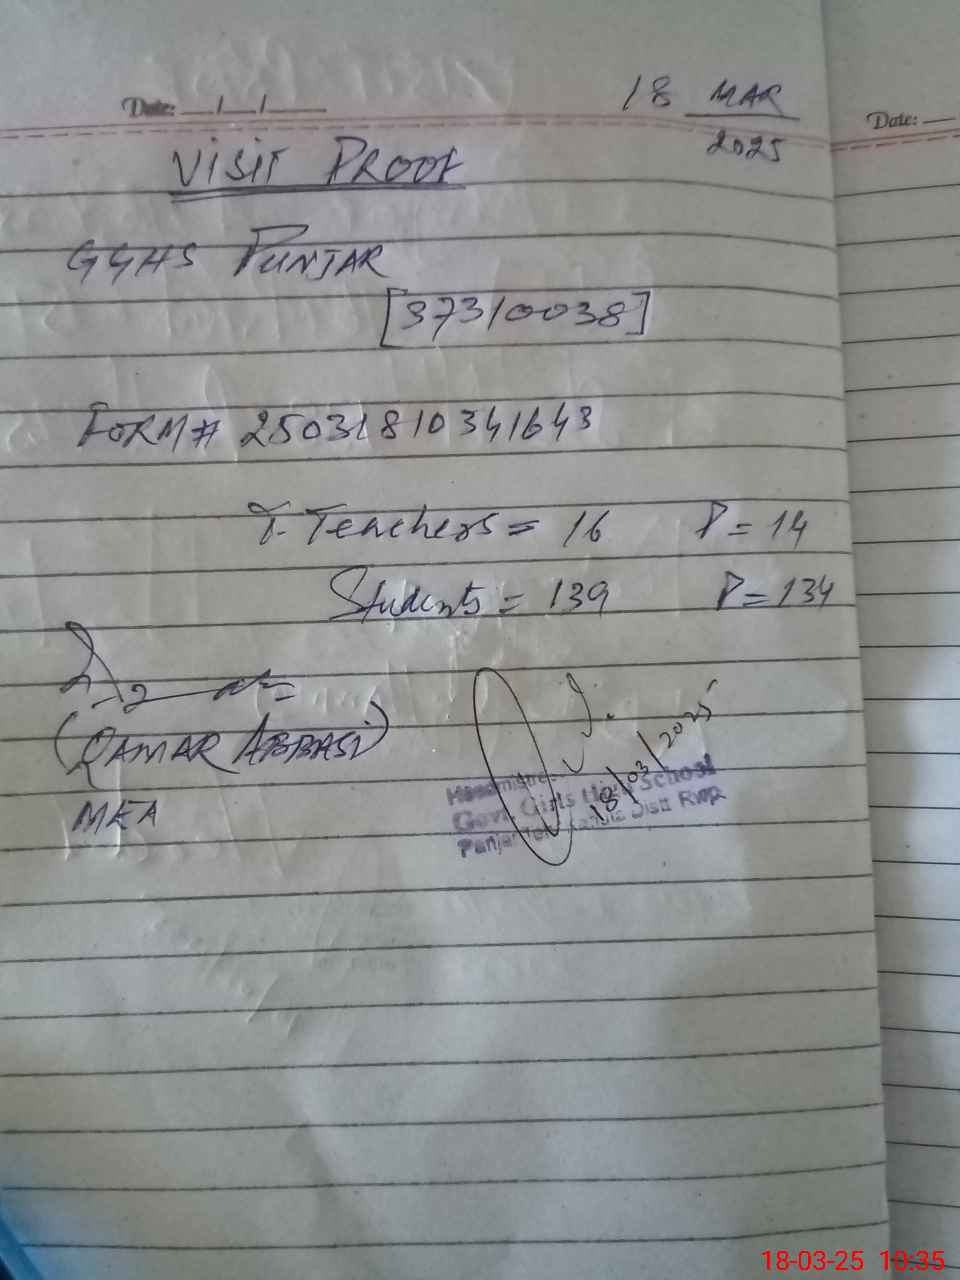 Date: __/__/____
18 MAR
2025
Date: __
VISIT PROOF
GGHS PUNJAR
[37310038]
FORM# 25031810341643
T. Teachers = 16 P = 14
Students = 139 P = 134
(QAMAR ABBASI)
MEA
18/03/2025
Headmistress
Govt. Girls High School
Panjar Distt RWP
18-03-25 10:35